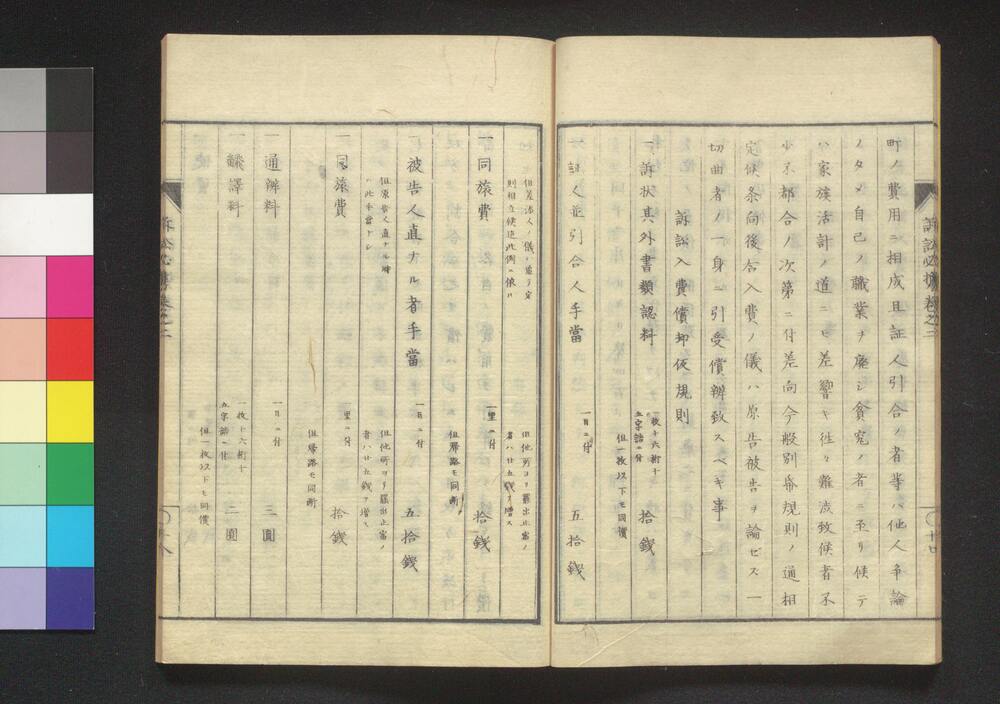 町ノ費用ニ相成且証人引合ノ者等ハ他人争論
ノタメ自己ノ職業ヲ廃シ貧窮ノ者ニ至リ候テ
ハ家族活計ノ道ニモ差響キ往々難渋致候者不
少不都合ノ次第ニ付差向今般別冊規則ノ通相
定候条向後右入費ノ儀ハ原告被告ヲ論ゼス一
切曲者ノ一身ニ引受償辨致スベキ事
訴訟入費償却仮規則
一訴状其外書類認料
一枚十六桁十
五字詰ニ付
拾錢
但一枚以下モ同價
一証人並引合人手當
一日ニ付
五拾錢
訴訟必携巻之二
十四
但差添人ノ儀ハ
則相立候迄此例ニ依ル
但他所ヨリ罷出止宿ノ
者ハ廿五錢ヲ増ス
一同旅費
一里ニ付
拾錢
但帰路モ同断
一被告人直ナル者手當
一日ニ付
五拾錢
但原告人直ナル時
ハ此手當ナシ
但他所ヨリ罷出止宿ノ
者ハ廿五錢ヲ増ス
一同旅費
一里ニ付
拾錢
但帰路モ同断
一通辨料
一日ニ付
三圓
一飜譯料
一枚十六桁十
五字詰ニ付
二圓
但一枚以下モ同價
訴訟必携巻之二